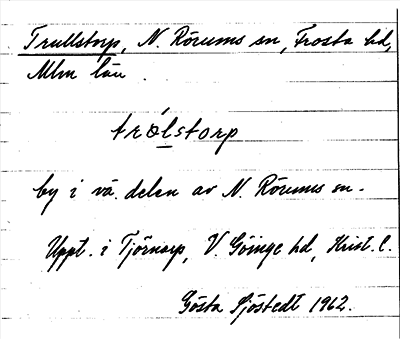 Trullstorp, N. Rörums sn, Frosta hd,
Mlm län.
trólstorp
by i vä. delen av N. Rörums sn.
Uppt. i Tjörnarp, V. Göinge hd, Krist. l.
Gösta Sjöstedt 1962.